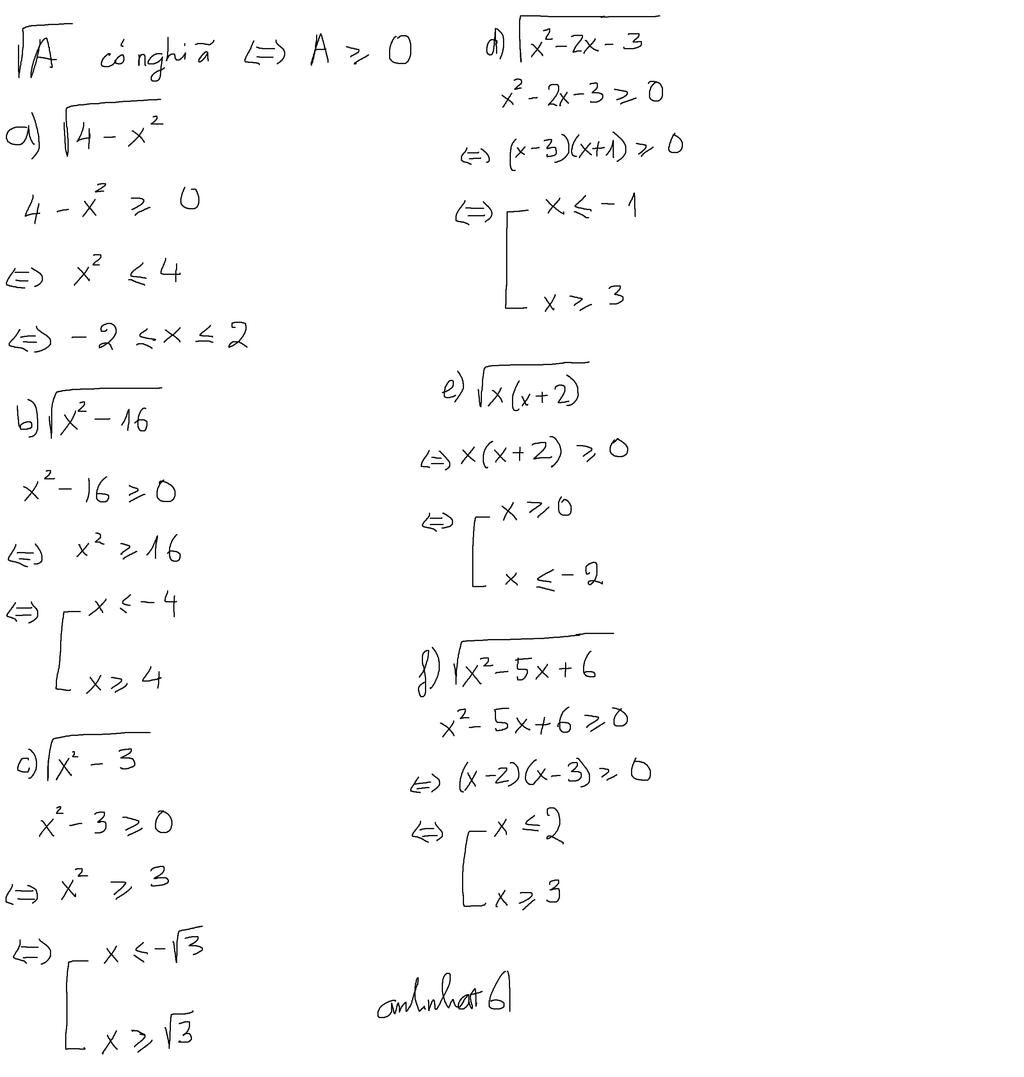 √A có nghĩã <=> A ⩾ 0
a) √(4 - x²)
4 - x² ⩾ 0
<=> x² ⩽ 4
<=> - 2 ⩽ x ⩽ 2
b) √(x² - 16)
x² - 16 ⩾ 0
<=> x² ⩾ 16
<=> [ x ⩽ - 4
x ⩾ 4
c) √(x² - 3)
x² - 3 ⩾ 0
<=> x² ⩾ 3
<=> [ x ⩽ -√3
x ⩾ √3
d) √(x² - 2x - 3)
x² - 2x - 3 ⩾ 0
<=> (x-3)(x+1) ⩾ 0
<=> [ x ⩽ - 1
x ⩾ 3
e) √(x(x+2))
<=> x(x+2) ⩾ 0
<=> [ x ⩾ 0
x ⩽ - 2
f) √(x² - 5x + 6)
x² - 5x + 6 ⩾ 0
<=> (x-2)(x-3) ⩾ 0
<=> [ x ⩽ 2
x ⩾ 3